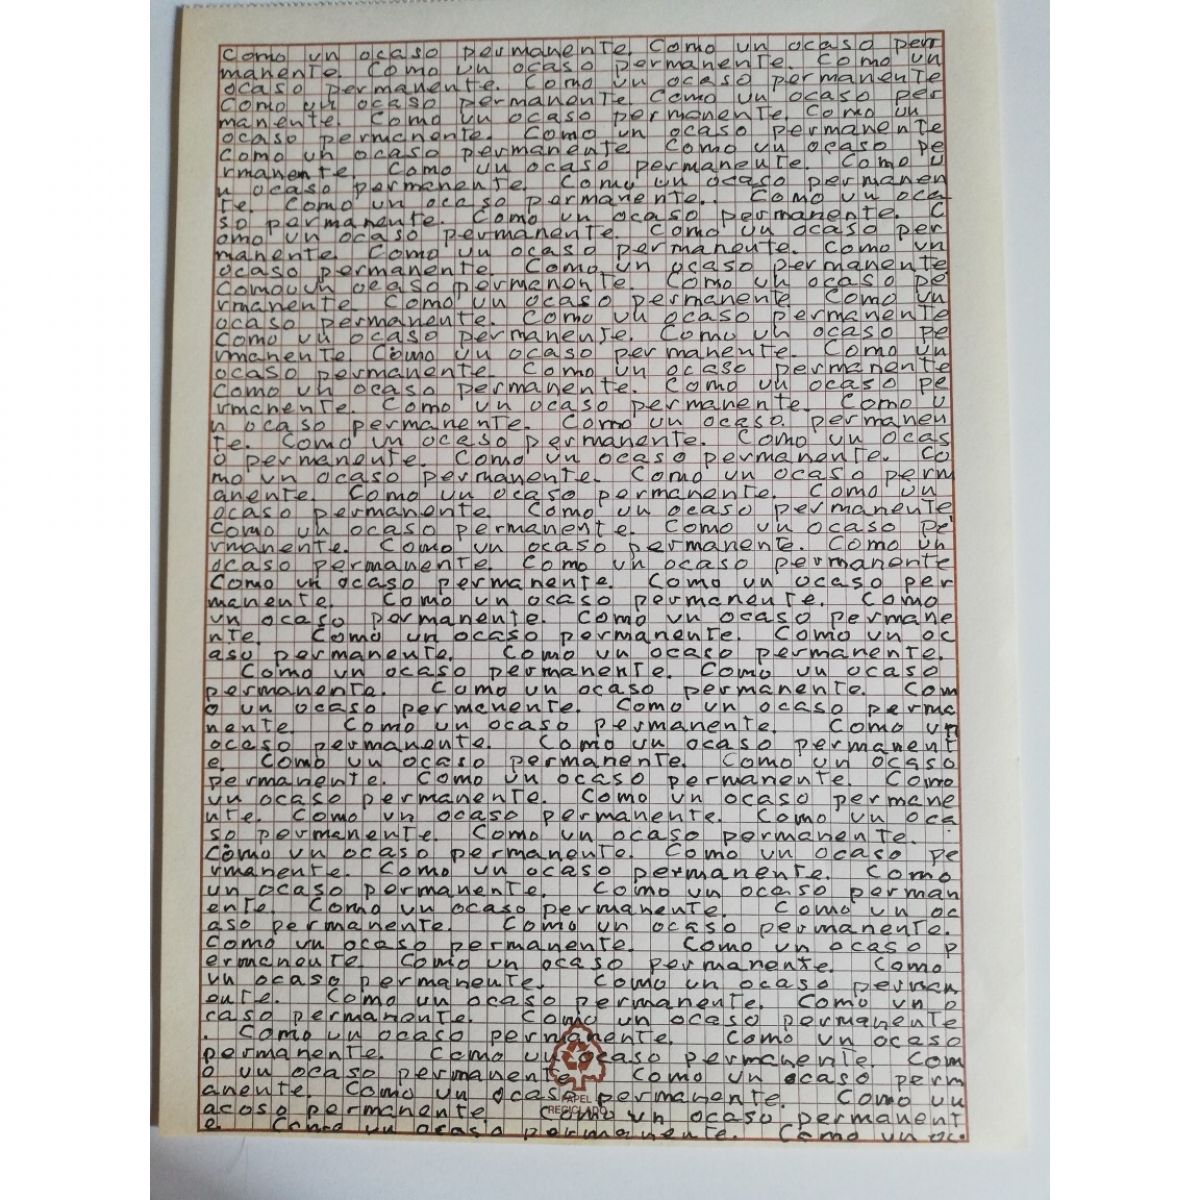 Como un ocaso permanente. Como un ocaso per
manente. Como un ocaso permanente. Como un
ocaso permanente. Como un ocaso permanente
Como un ocaso permanente. Como un ocaso per
manente. Como un ocaso permanente. Como un
ocaso permanente. Como un ocaso permanente
Como un ocaso permanente Como un ocaso pe
rmanente. Como un ocaso permanente. Como u
n ocaso permanente. Como un ocaso permanen
te. Como un ocaso permanente. Como un oca
so permanente. Como un ocaso permanente. C
omo un ocaso permanente. Como un ocaso per
manente. Como un ocaso permanente. Como un
ocaso permanente. Como un ocaso permanente
Como un ocaso permanente. Como un ocaso pe
rmanente. Como un ocaso permanente Como un
ocaso permanente. Como un ocaso permanente
Como un ocaso permanente. Como un ocaso pe
rmanente. Como un ocaso permanente. Como un
ocaso permanente. Como un ocaso permanente
Como un ocaso permanente. Como un ocaso pe
rmanente. Como un ocaso permanente. Como u
n ocaso permanente. Como un ocaso permanen
te. Como un ocaso permanente. Como un ocas
o permanente. Como un ocaso permanente. Co
mo un ocaso permanente. Como un ocaso perm
anente. Como un ocaso permanente. Como un
ocaso permanente. Como un ocaso permanente
Como un ocaso permanente. Como un ocaso pe
rmanente. Como un ocaso permanente. Como un
ocaso permanente. Como un ocaso permanente
Como un ocaso permanente. Como un ocaso per
manente. Como un ocaso permanente. Como
un ocaso permanente. Como un ocaso permane
nte. Como un ocaso permanente. Como un oc
aso permanente. Como un ocaso permanente.
Como un ocaso permanente. Como un ocaso
permanente. Como un ocaso permanente. Com
o un ocaso permanente. Como un ocaso perma
nente. Como un ocaso permanente. Como un
ocaso permanente. Como un ocaso permanent
e. Como un ocaso permanente. Como un ocaso
permanente. Como un ocaso permanente. Como
un ocaso permanente. Como un ocaso permane
nte. Como un ocaso permanente. Como un oca
so permanente. Como un ocaso permanente.
Como un ocaso permanente. Como un ocaso pe
rmanente. Como un ocaso permanente. Como
un ocaso permanente. Como un ocaso perman
ente. Como un ocaso permanente. Como un oc
aso permanente. Como un ocaso permanente.
Como un ocaso permanente. Como un ocaso p
ermanente. Como un ocaso permanente. Como
un ocaso permanente. Como un ocaso perman
ente. Como un ocaso permanente. Como un o
caso permanente. Como un ocaso permanente
. Como un ocaso permanente. Como un ocaso
permanente. Como un ocaso permanente. Com
o un ocaso permanente. Como un ocaso perm
anente. Como un ocaso permanente. Como un
ocaso permanente Como un ocaso permanent
e. Como un ocaso permanente. Como un oc.
PAPEL
RECICLADO